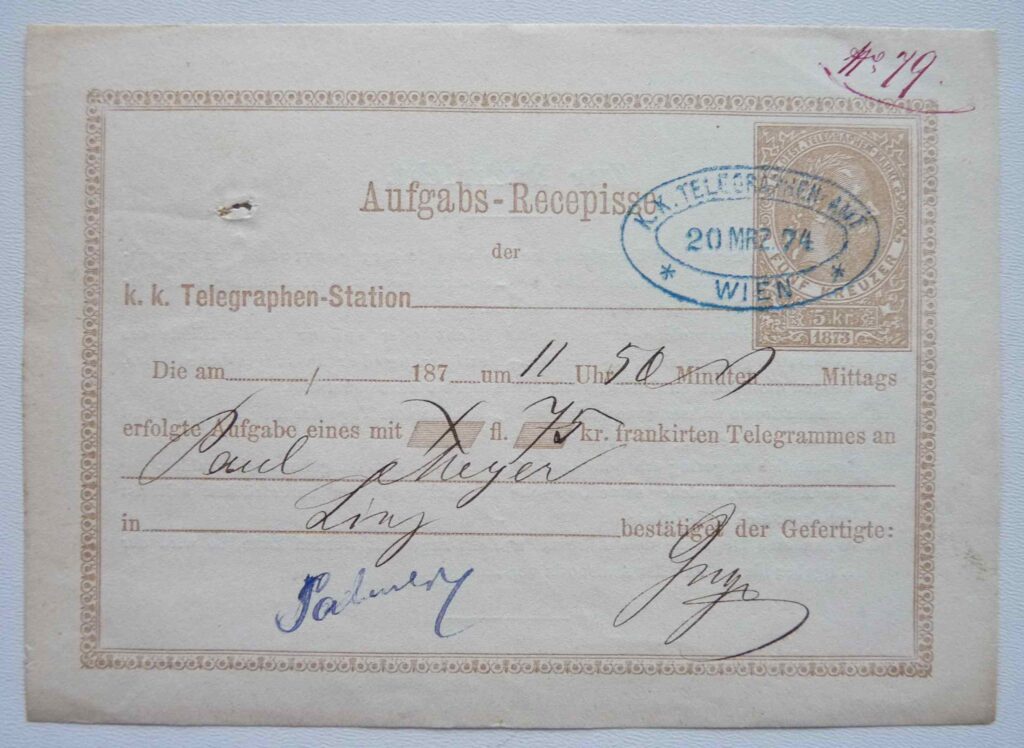 No 79
Aufgabs-Recepisse
der
k. k. Telegraphen-Station
K. K. TELEGRAPHEN AMT
20 MRZ. 74
* WIEN *
FÜNF KREUZER
5 kr.
1873
Die am 187 um 11 Uhr 50 Minuten Mittags
erfolgte Aufgabe eines mit X fl. 75 kr. frankirten Telegrammes an
Paul Meyer
in Linz bestätiget der Gefertigte: